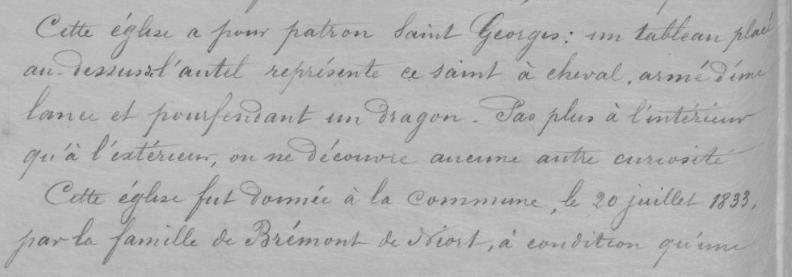 Cette église a pour patron Saint Georges: un tableau placé
au-dessus de l'autel représente ce saint à cheval, armé d'une
lance et pourfendant un dragon. Pas plus à l'intérieur
qu'à l'extérieur, on ne découvre aucune autre curiosité
Cette église fut donnée à la commune, le 20 juillet 1833,
par la famille de Brémont de Niort, à condition qu'une